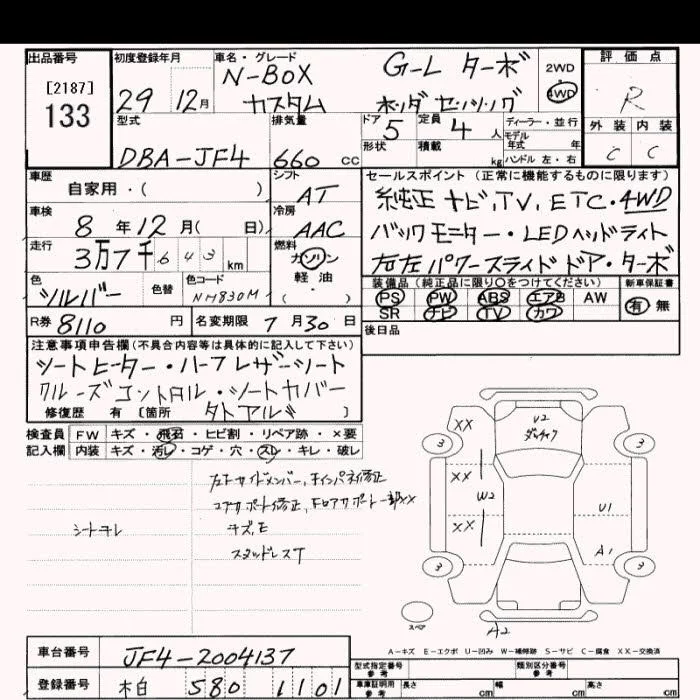 出品番号 [2187] 133
初度登録年月 29 12月
車名・グレード N-BOX G-L ターボ
カスタム ホンダセンシング
2WD 4WD
評価点 R
外装 内装
C C
型式 DBA-JF4
排気量 660 cc
ドア 5 定員 4 人
形状 積載 kg
ディーラー・並行
モデル年式 年
ハンドル 左・右
車歴 自家用・( )
シフト AT
セールスポイント (正常に機能するものに限ります)
純正ナビ,TV,ETC・4WD
バックモニター・LEDヘッドライト
右左パワースライドドア・ターボ
車検 8年12月( 日)
冷房 AAC
走行 3万7千643 km
燃料 ガソリン 軽油 ( ・ )
色 シルバー 色替 色コード NH830M
装備品 (純正品に限り○をつけてください)
PS PW ABS エアB AW
SR ナビ TV カワ
新車保証書 有 無
R券 8110 円 名変期限 7月30日
後日品
注意事項申告欄(不具合内容等は具体的に記入して下さい)
シートヒーター・ハーフレザーシート
クルーズコントロル・シートカバー
修復歴 有 [箇所 ]
検査員記入欄
FW キズ・飛石・ヒビ割・リペア跡・×要
内装 キズ・汚レ・コゲ・穴・スレ・キレ・破レ
シートヨレ
キズ,E
スタッドレスT
XX
U2
3 3
XX
W2
XX
U1
A1
3 3
スペア
A2
A-キズ E-エクボ U-凹み W-補修跡 S-サビ C-腐食 XX-交換済
車台番号 JF4-2004137
登録番号 580 1101
型式指定番号 参考
類別区分番号 参考
車庫証明用 参考 長さ cm 幅 cm 高さ cm